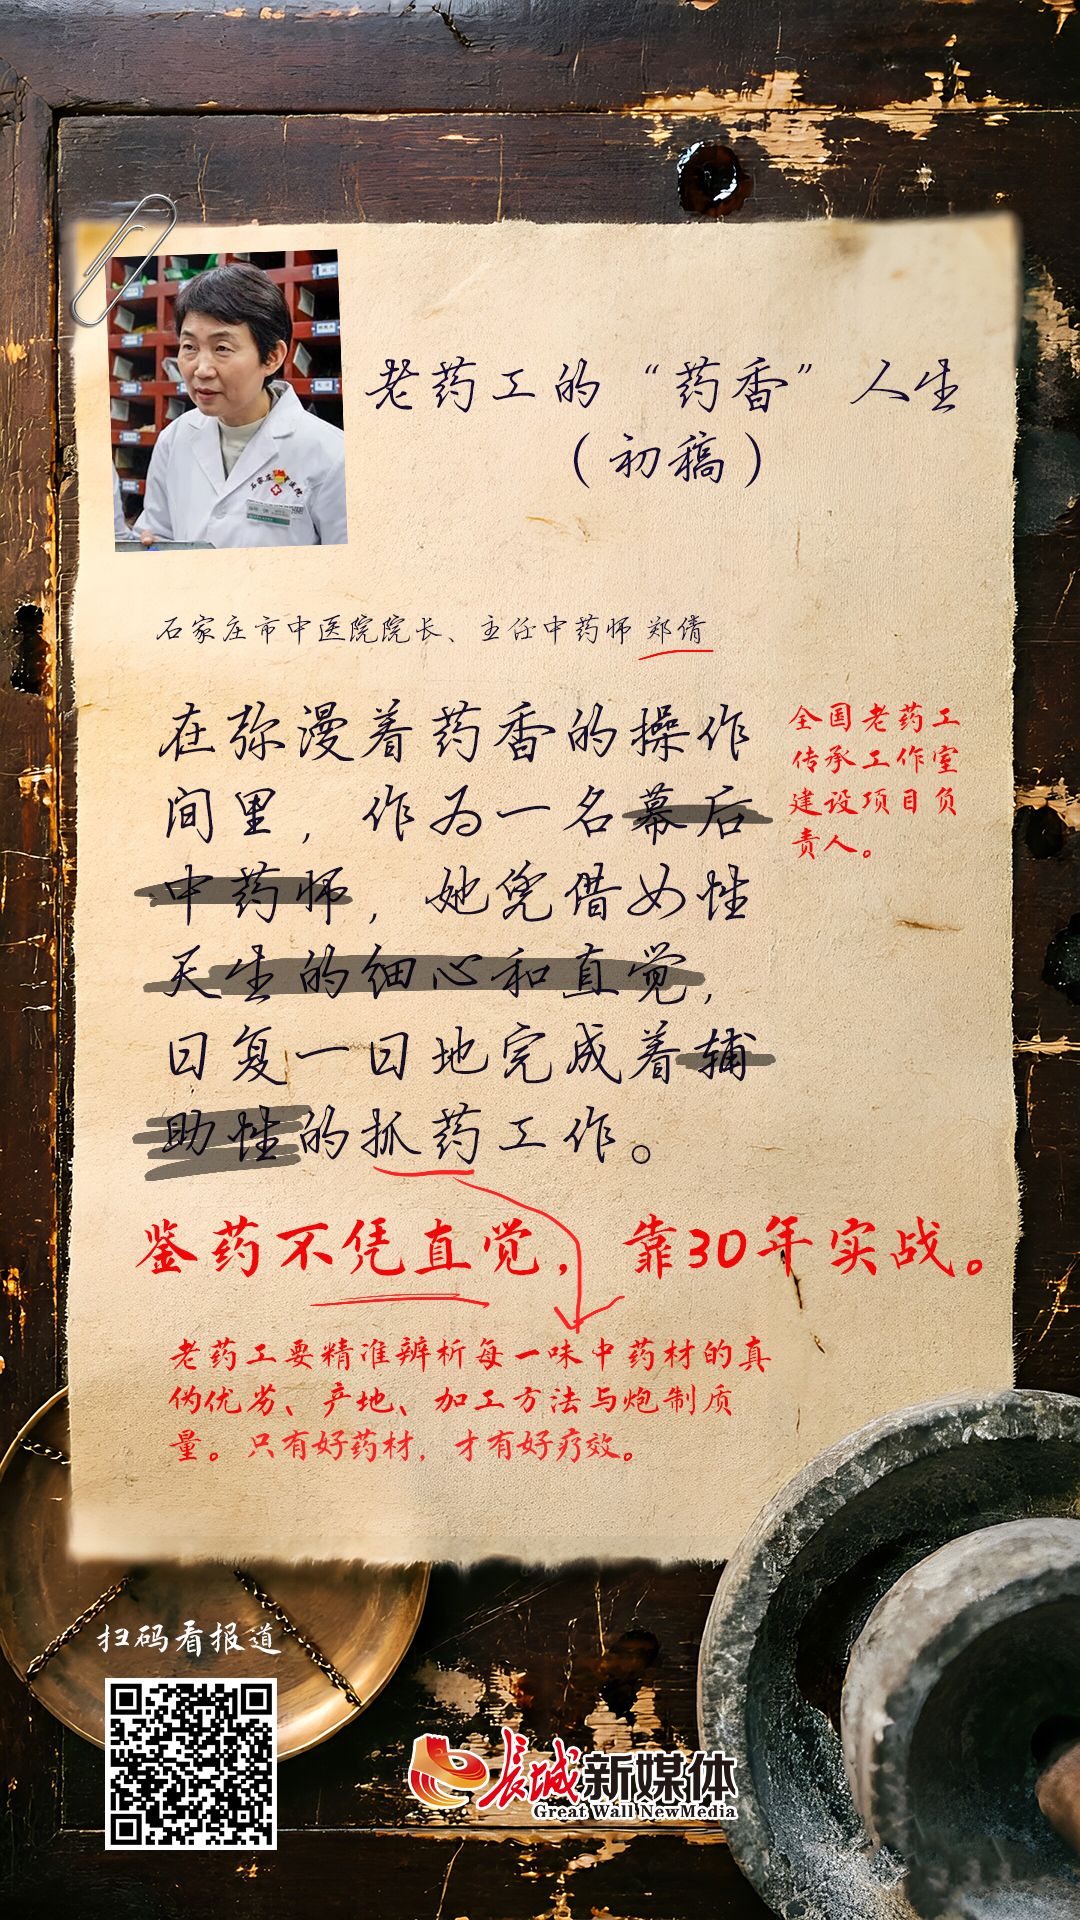 老药工的“药香”人生
（初稿）
石家庄市中医院院长、主任中药师 郑倩
在弥漫着药香的操作
间里，作为一名幕后
中药师，她凭借女性
天生的细心和直觉，
日复一日地完成着辅
助性的抓药工作。
全国老药工
传承工作室
建设项目负
责人。
鉴药不凭直觉，靠30年实战。
老药工要精准辨析每一味中药材的真
伪优劣、产地、加工方法与炮制质
量。只有好药材，才有好疗效。
扫码看报道
长城新媒体
Great Wall NewMedia